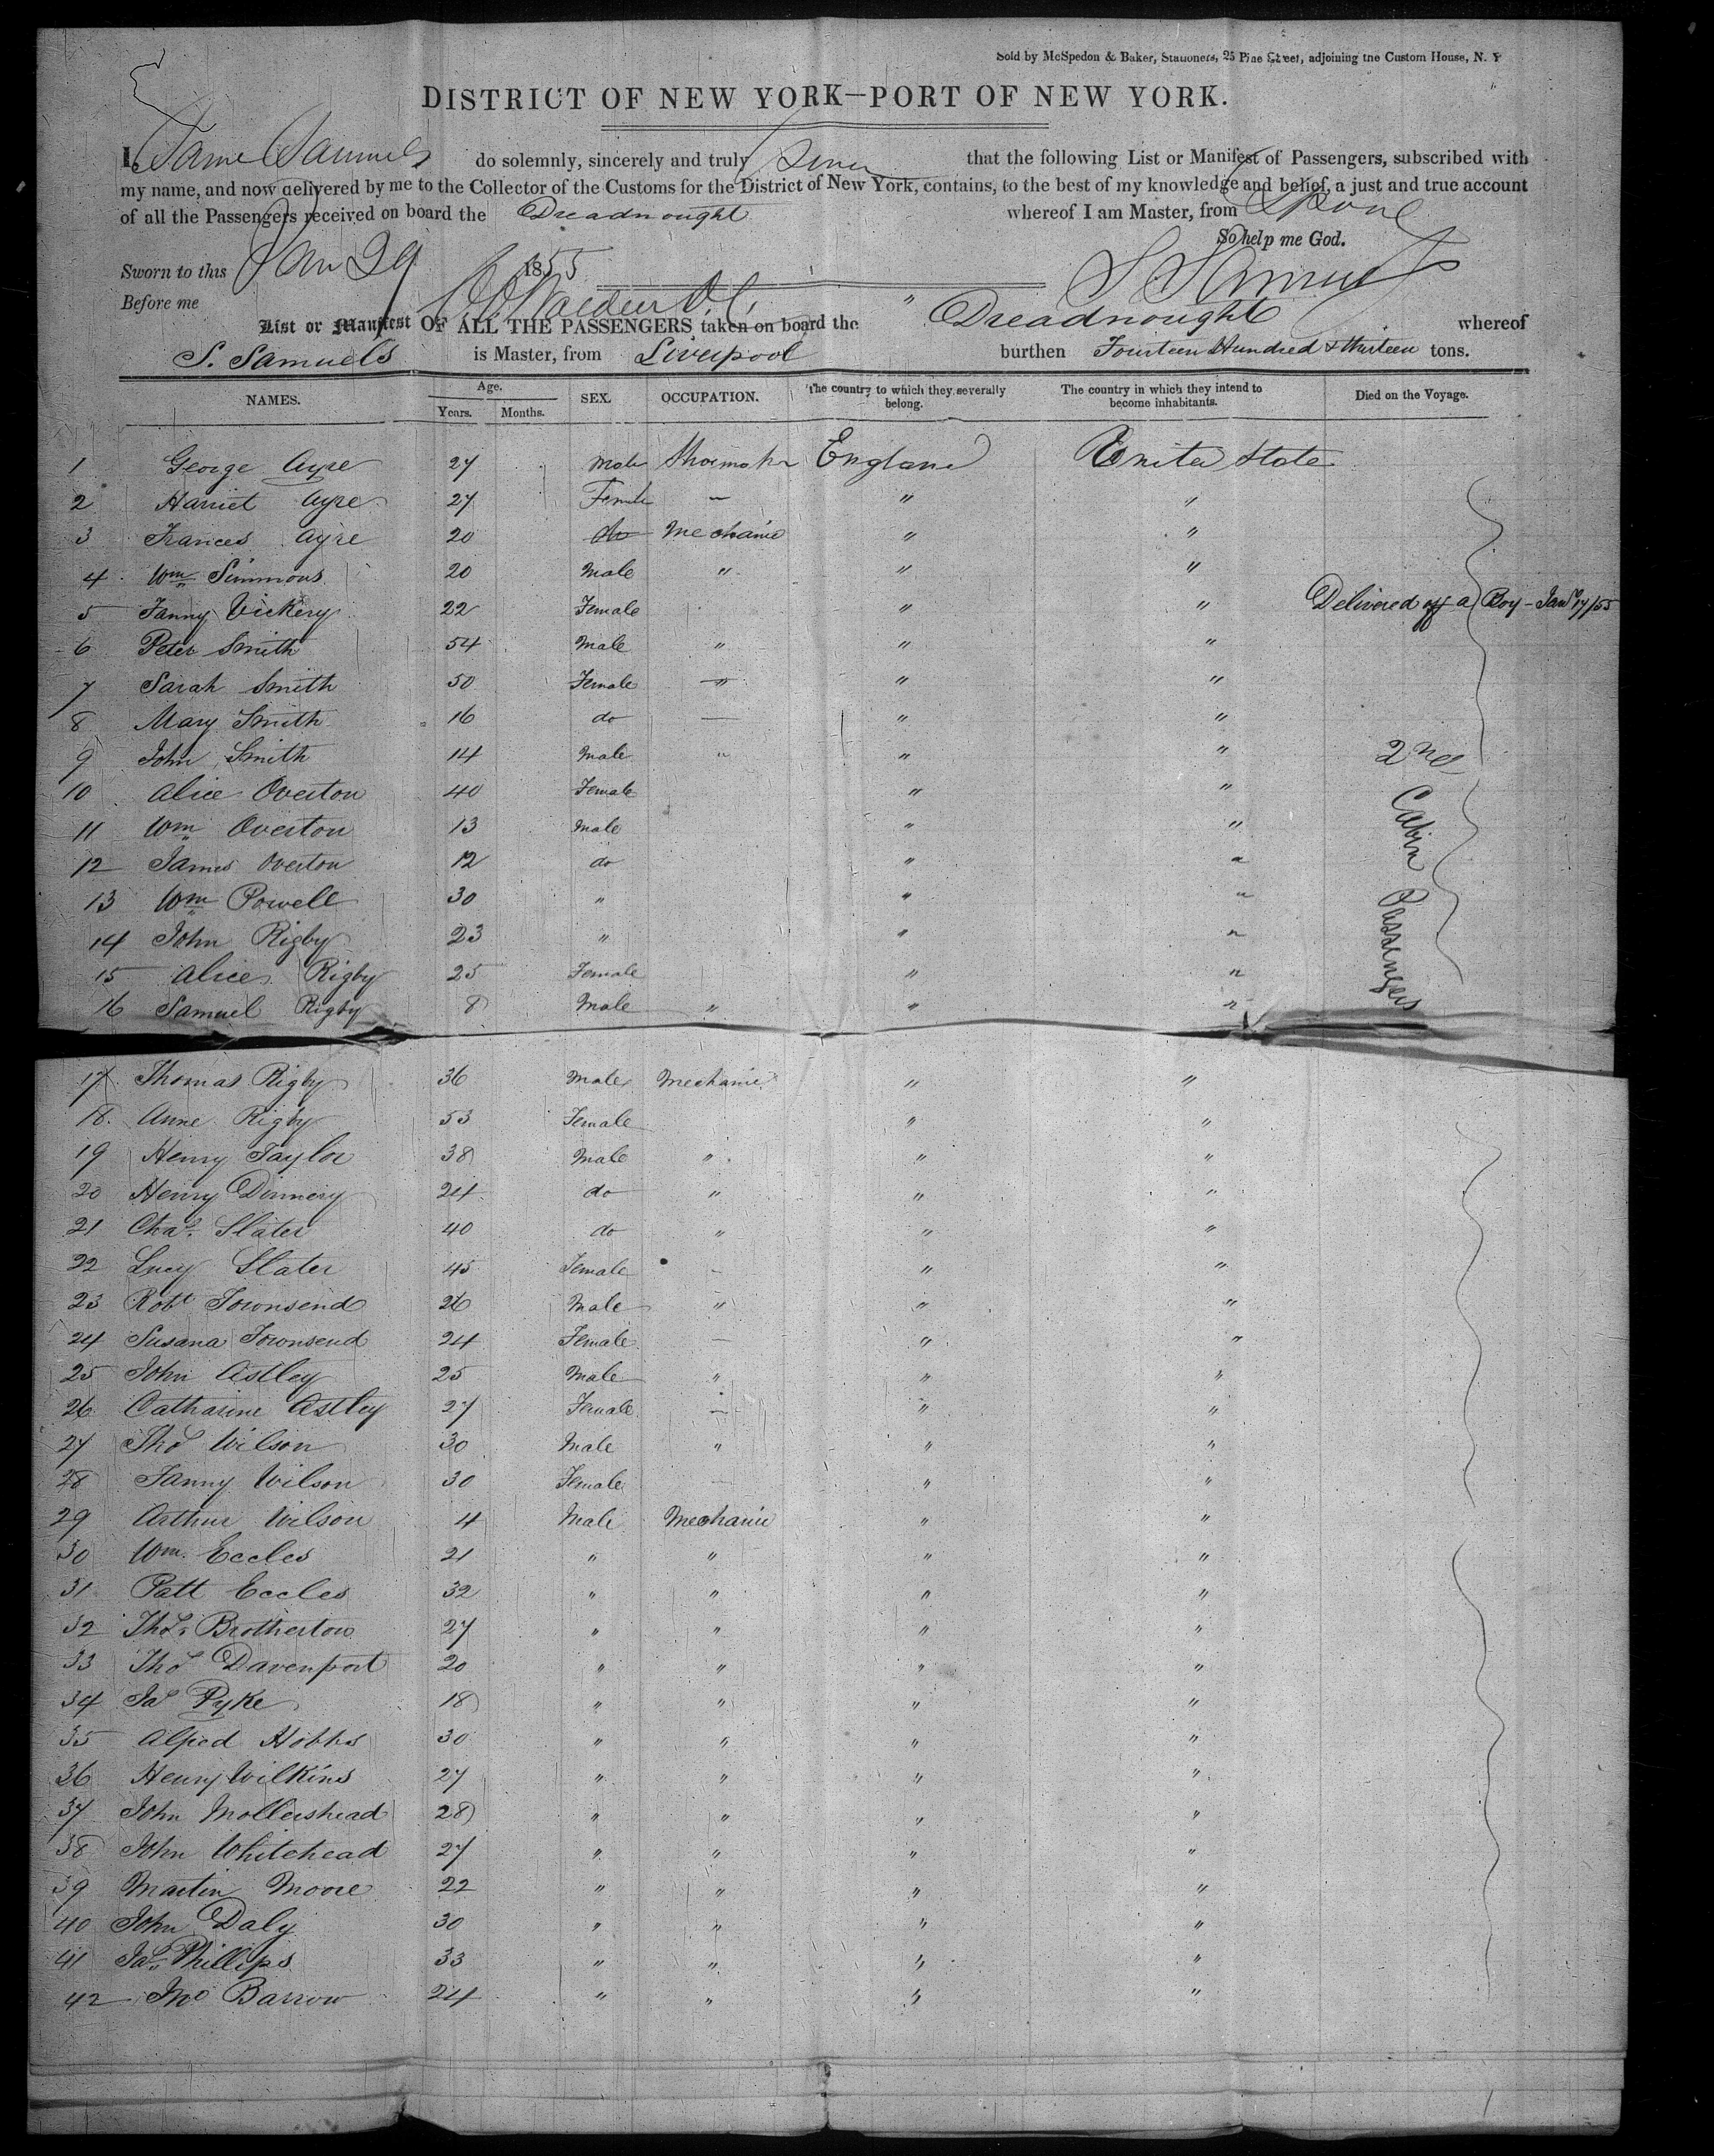 Sold by McSpedon & Baker, Stationers, 25 Pine Street, adjoining the Custom House, N. Y
DISTRICT OF NEW YORK—PORT OF NEW YORK.
I, Samuel Samuels do solemnly, sincerely and truly swear that the following List or Manifest of Passengers, subscribed with
my name, and now delivered by me to the Collector of the Customs for the District of New York, contains, to the best of my knowledge and belief, a just and true account
of all the Passengers received on board the Dreadnought whereof I am Master, from Lpool
So help me God.
Sworn to this Jan 29 1855 S. Samuels
Before me
List or Manifest OF ALL THE PASSENGERS taken on board the Dreadnought whereof
S. Samuels is Master, from Liverpool burthen Fourteen Hundred & thirteen tons.
NAMES. Age. Years. Months. SEX. OCCUPATION. The country to which they severally belong. The country in which they intend to become inhabitants. Died on the Voyage.
1 George Ayre 27 Male Shoemaker England United State
2 Harriet Ayre 27 Female — " "
3 Frances Ayre 20 do Mechanic " "
4 Wm Simmons 20 Male " " "
5 Fanny Vickery 22 Female " " Delivered off a Boy - Jany 17/55
6 Peter Smith 54 Male " " "
7 Sarah Smith 50 Female " " "
8 Mary Smith 16 do — " "
9 John Smith 14 Male " " " 2nd
10 Alice Overton 40 Female " " Cabin
11 Wm Overton 13 Male " "
12 James Overton 12 do " "
13 Wm Powell 30 " " " Passengers
14 John Rigby 23 " " "
15 Alice Rigby 25 Female " "
16 Samuel Rigby 8 Male " " "
17 Thomas Rigby 36 Male Mechanic " "
18. Anne Rigby 53 Female " "
19 Henry Taylor 38 Male " " "
20 Henry Dinnery 24 do " " "
21 Chas. Slater 40 do " " "
22 Lucy Slater 45 Female — " "
23 Robt Townsend 26 Male " " "
24 Susana Townsend 24 Female — " "
25 John Astley 25 Male " " "
26 Catharine Astley 27 Female — " "
27 Thos Wilson 30 Male " " "
28 Fanny Wilson 30 Female — " "
29 Arthur Wilson 4 Male Mechanic " "
30 Wm. Eccles 21 " " " "
31 Patt Eccles 32 " " " "
32 Thos. Brotherton 27 " " " "
33 Thos Davenport 20 " " " "
34 Jas Pyke 18 " " " "
35 Alfred Hobbs 30 " " " "
36 Henry Wilkins 27 " " " "
37 John Mollershead 28 " " " "
38 John Whitehead 27 " " " "
39 Martin Moore 22 " " " "
40 John Daly 30 " " " "
41 Jas. Phillips 33 " " " "
42 Jno Barrow 24 " " " "